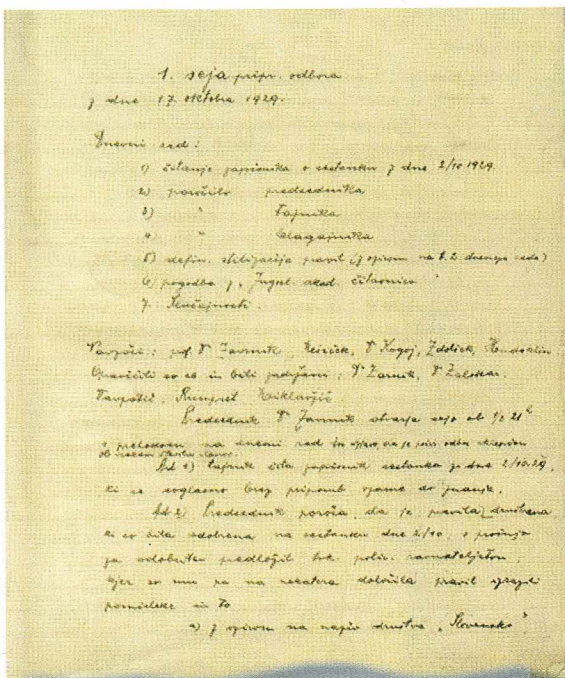 1. seja pripr. odbora
z dne 17. oktobra 1929.
Dnevni red:
1) čitanje zapisnika o sestanku z dne 2/10.1929.
2) poročilo predsednika
3) " tajnika
4) " blagajnika
5) defin. stilizacija pravil (z ozirom na t. 2. dnevnega reda)
6) pogodba z "Jugosl. akad. čitalnico"
7. Slučajnosti.
Navzoči: prof. Dr Zavrnik, Kogoj, Zdolšek,
Opravičili so se in bili zadržani: Dr Zalokar.
Rumpret Miklavžič
Predsednik Dr otvarja sejo ob ½ 21h
s prehodom na dnevni red in
Ad 1) tajnik čita zapisnik sestanka z dne 2/10.29,
ki se soglasno brez pripomb vzame do znanja.
Ad 2) Predsednik poroča, da je pravila društvena
ki so bila odobrena na sestanku dne 2/10, s prošnjo
za odobritev predložil polic. ravnateljstvu,
kjer so mu pa na nekatera določila pravil izrazili
pomisleke in to
a) z ozirom na naziv društva "Slovensko"